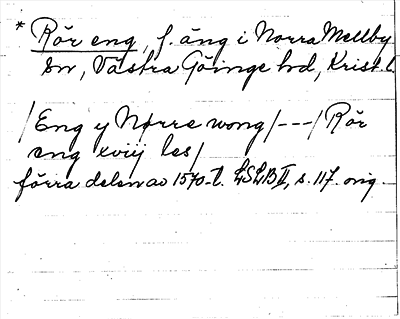 * Rör eng, f. äng i Norra Mellby
sn, Västra Göinge hd, Krist. l.
/Eng y Nørre wong/---/Rör
eng xviij les/
förra delen av 1570-t. LSLB II, s. 117. orig.